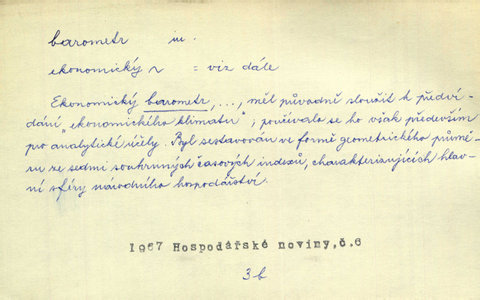 barometr m.
ekonomický ~ = viz dále
Ekonomický barometr, ..., měl původně sloužit k předví-
dání "ekonomického klimatu"; používalo se ho však především
pro analytické účely. Byl sestavován ve formě geometrického průmě-
ru ze sedmi souhrnných časových indexů, charakterizujících hlav-
ní sféry národního hospodářství.
1967 Hospodářské noviny,č.6
3b